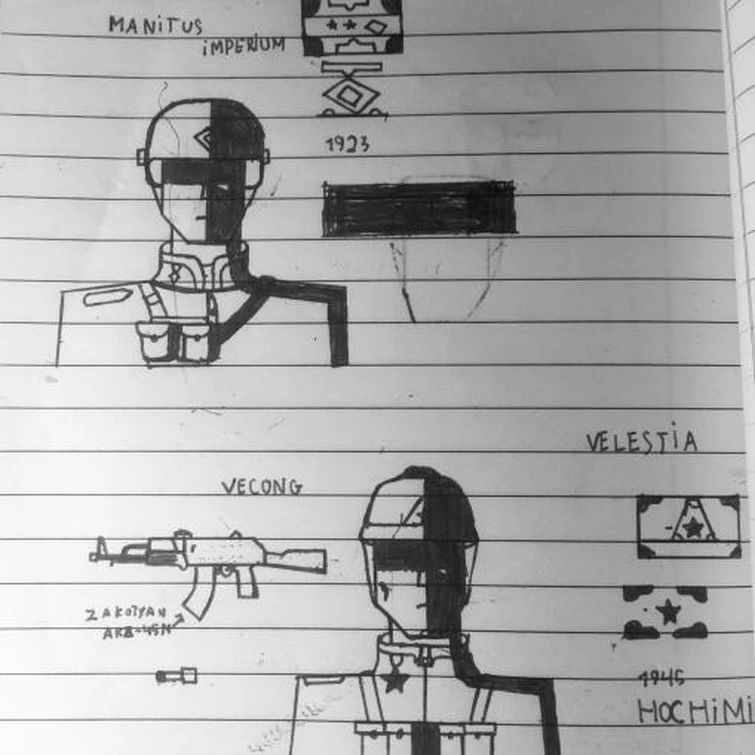 MANiTUS
iMPERiUM
1923
VELESTiA
VECONG
ZAKOTYAN
AKB-45N
1945
HOCHiMi